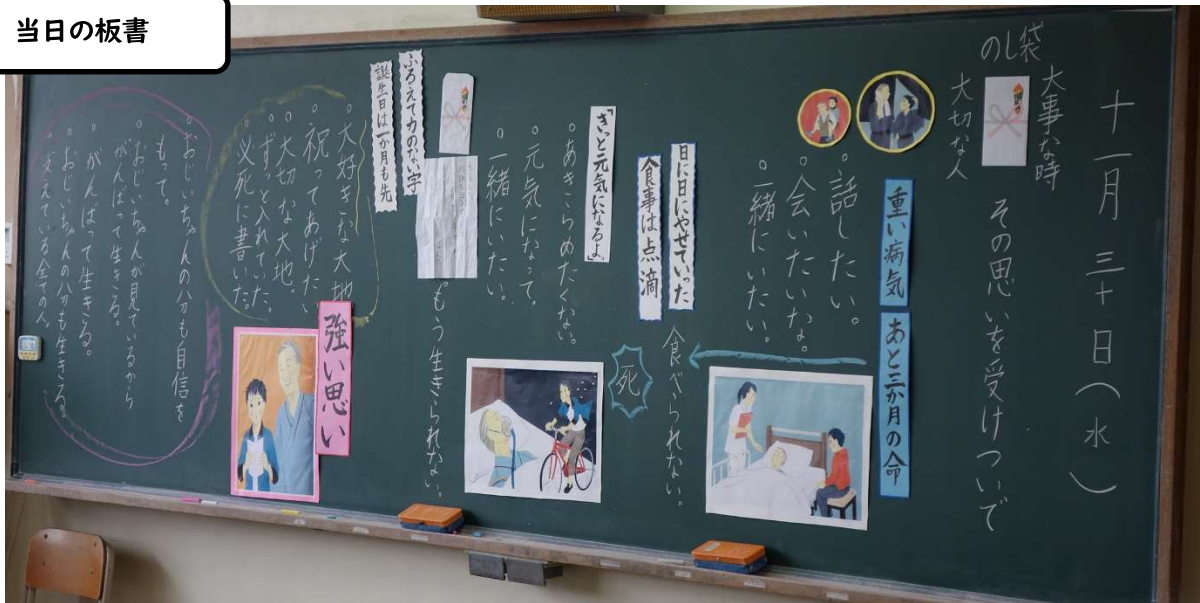 当日の板書
十一月三十日(水)
その思いを受けついで
のし袋
大事な時
大切な人
重い病気
あと三か月の命
。話したい。
。会いたいな。
。一緒にいたい。
日に日にやせていった
食事は点滴
食べられない。
死
「きっと元気になるよ」
。あきらめたくない。
。元気になって。
。一緒にいたい。
もう生きられない。
ふるえて力のない字
誕生日は一か月も先
強い思い
。大好きな大地
。祝ってあげたい
。大切な大地。
。ずっと入れていた。
。必死に書いた。
。おじいちゃんの分も自信を
もって。
。おじいちゃんが見ているから
がんばって生きる。
。がんばって生きる。
。おじいちゃんの分も生きる。
。支えている全ての人